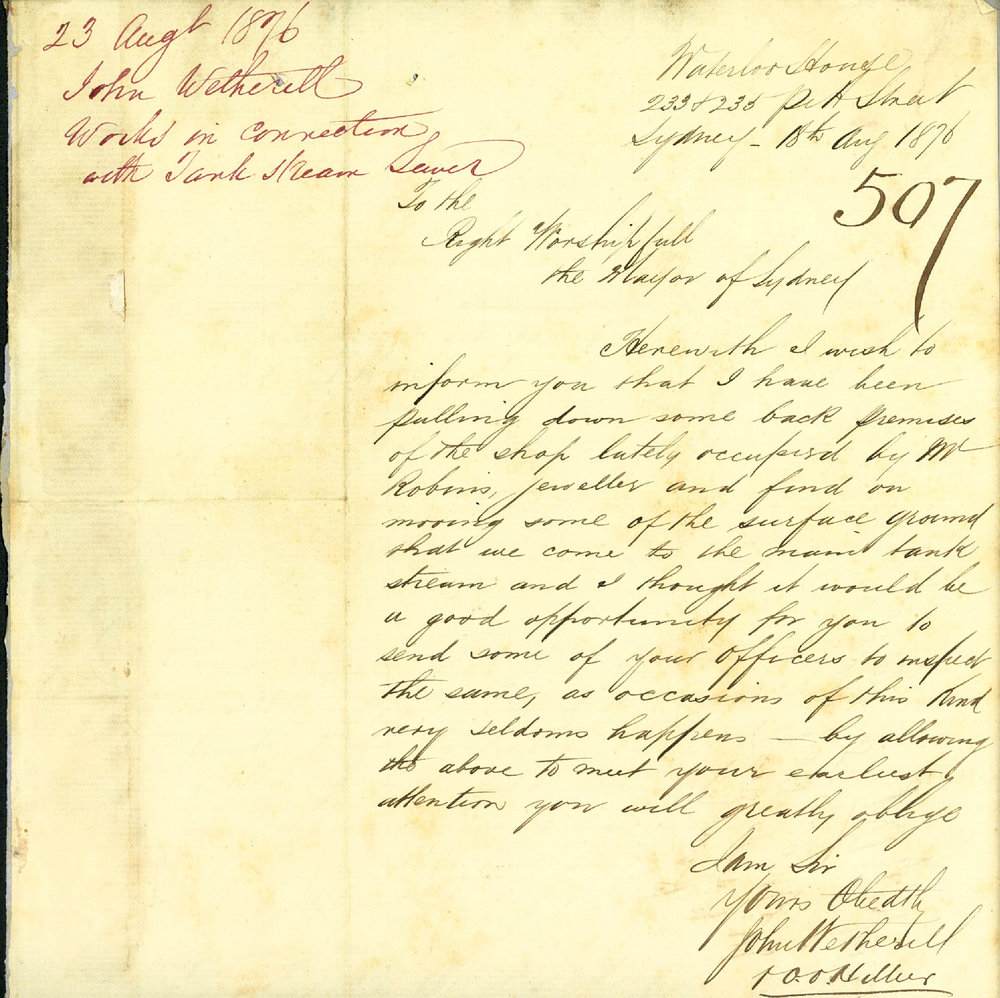 23 Augt 1876
John Wetherill
Works in connection
with Tank Stream Sewer
Waterloo House
233 & 235 Pitt Street
Sydney - 18th Aug 1876
507
To the
Right Worshipfull
the Mayor of Sydney
Herewith I wish to
inform you that I have been
pulling down some back premises
of the shop lately occupied by Mr
Robins, jeweller and find on
moving some of the surface ground
that we come to the main tank
stream and I thought it would be
a good opportunity for you to
send some of your Officers to inspect
the same, as occasions of this kind
very seldoms happens — by allowing
the above to meet your earliest
attention you will greatly oblige
I am Sir
Yours Obedtly
John Wetherill